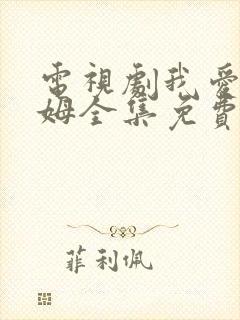 電視劇我愛
姆全集免費
菲利佩